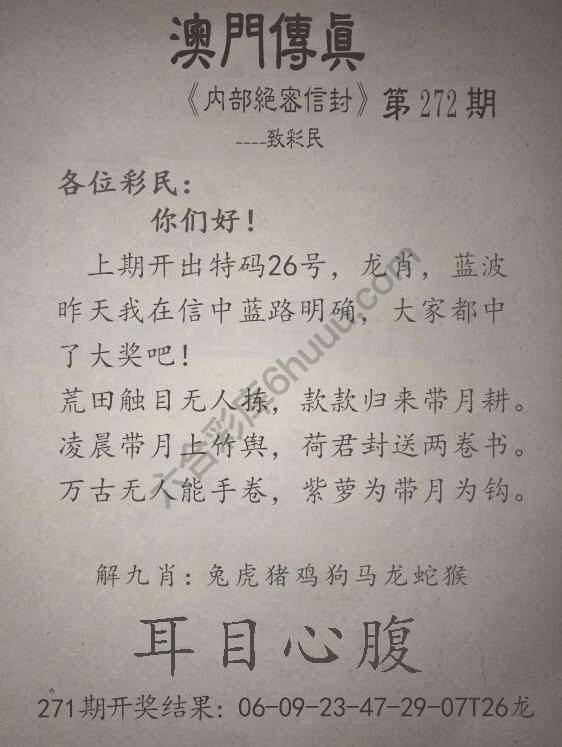 澳門傳真
《内部絕密信封》第272期
----致彩民
各位彩民：
你们好！
上期开出特码26号，龙肖，蓝波
昨天我在信中蓝路明确，大家都中
了大奖吧！
荒田触目无人拣，款款归来带月耕。
凌晨带月上竹舆，荷君封送两卷书。
万古无人能手卷，紫萝为带月为钩。
解九肖：兔虎猪鸡狗马龙蛇猴
耳目心腹
271期开奖结果：06-09-23-47-29-07T26龙
六合彩库6huuu.com